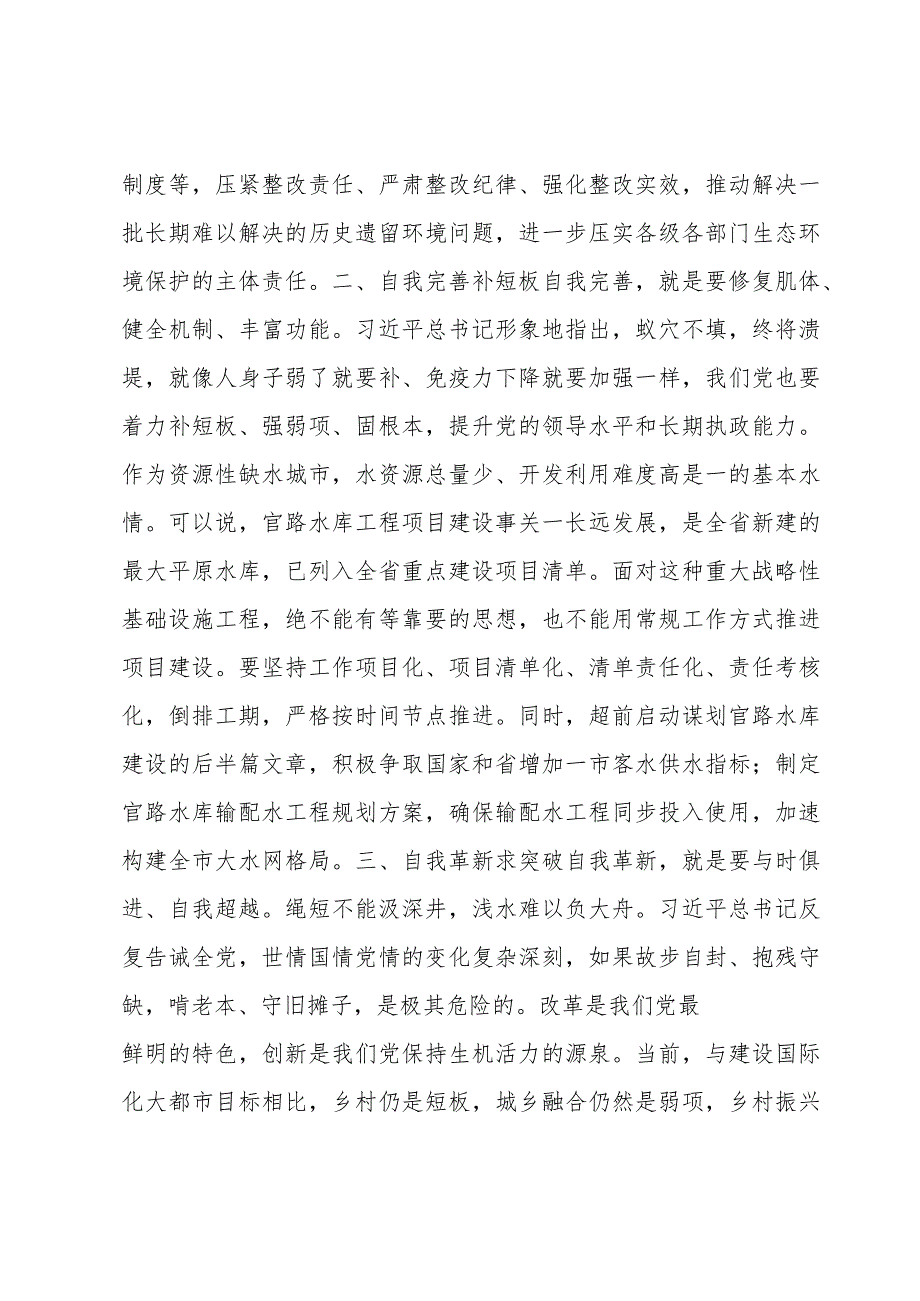 制度等，压紧整改责任、严肃整改纪律、强化整改实效，推动解决一
批长期难以解决的历史遗留环境问题，进一步压实各级各部门生态环
境保护的主体责任。二、自我完善补短板自我完善，就是要修复肌体、
健全机制、丰富功能。习近平总书记形象地指出，蚁穴不填，终将溃
堤，就像人身子弱了就要补、免疫力下降就要加强一样，我们党也要
着力补短板、强弱项、固根本，提升党的领导水平和长期执政能力。
作为资源性缺水城市，水资源总量少、开发利用难度高是一的基本水
情。可以说，官路水库工程项目建设事关一长远发展，是全省新建的
最大平原水库，已列入全省重点建设项目清单。面对这种重大战略性
基础设施工程，绝不能有等靠要的思想，也不能用常规工作方式推进
项目建设。要坚持工作项目化、项目清单化、清单责任化、责任考核
化，倒排工期，严格按时间节点推进。同时，超前启动谋划官路水库
建设的后半篇文章，积极争取国家和省增加一市客水供水指标；制定
官路水库输配水工程规划方案，确保输配水工程同步投入使用，加速
构建全市大水网格局。三、自我革新求突破自我革新，就是要与时俱
进、自我超越。绳短不能汲深井，浅水难以负大舟。习近平总书记反
复告诫全党，世情国情党情的变化复杂深刻，如果故步自封、抱残守
缺，啃老本、守旧摊子，是极其危险的。改革是我们党最
鲜明的特色，创新是我们党保持生机活力的源泉。当前，与建设国际
化大都市目标相比，乡村仍是短板，城乡融合仍然是弱项，乡村振兴